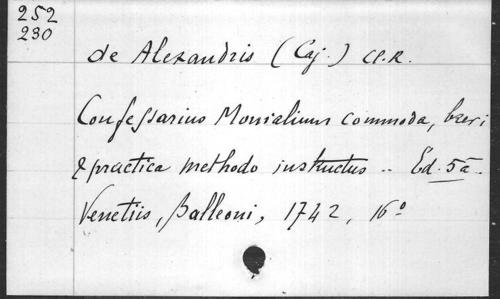 252
230
de Alexandris (Caj.) cl.R.
Confessarius Monialium commoda, brevi
& practica methodo instructus .. Ed. 5a.
Venetiis, Balleoni, 1742, 16º